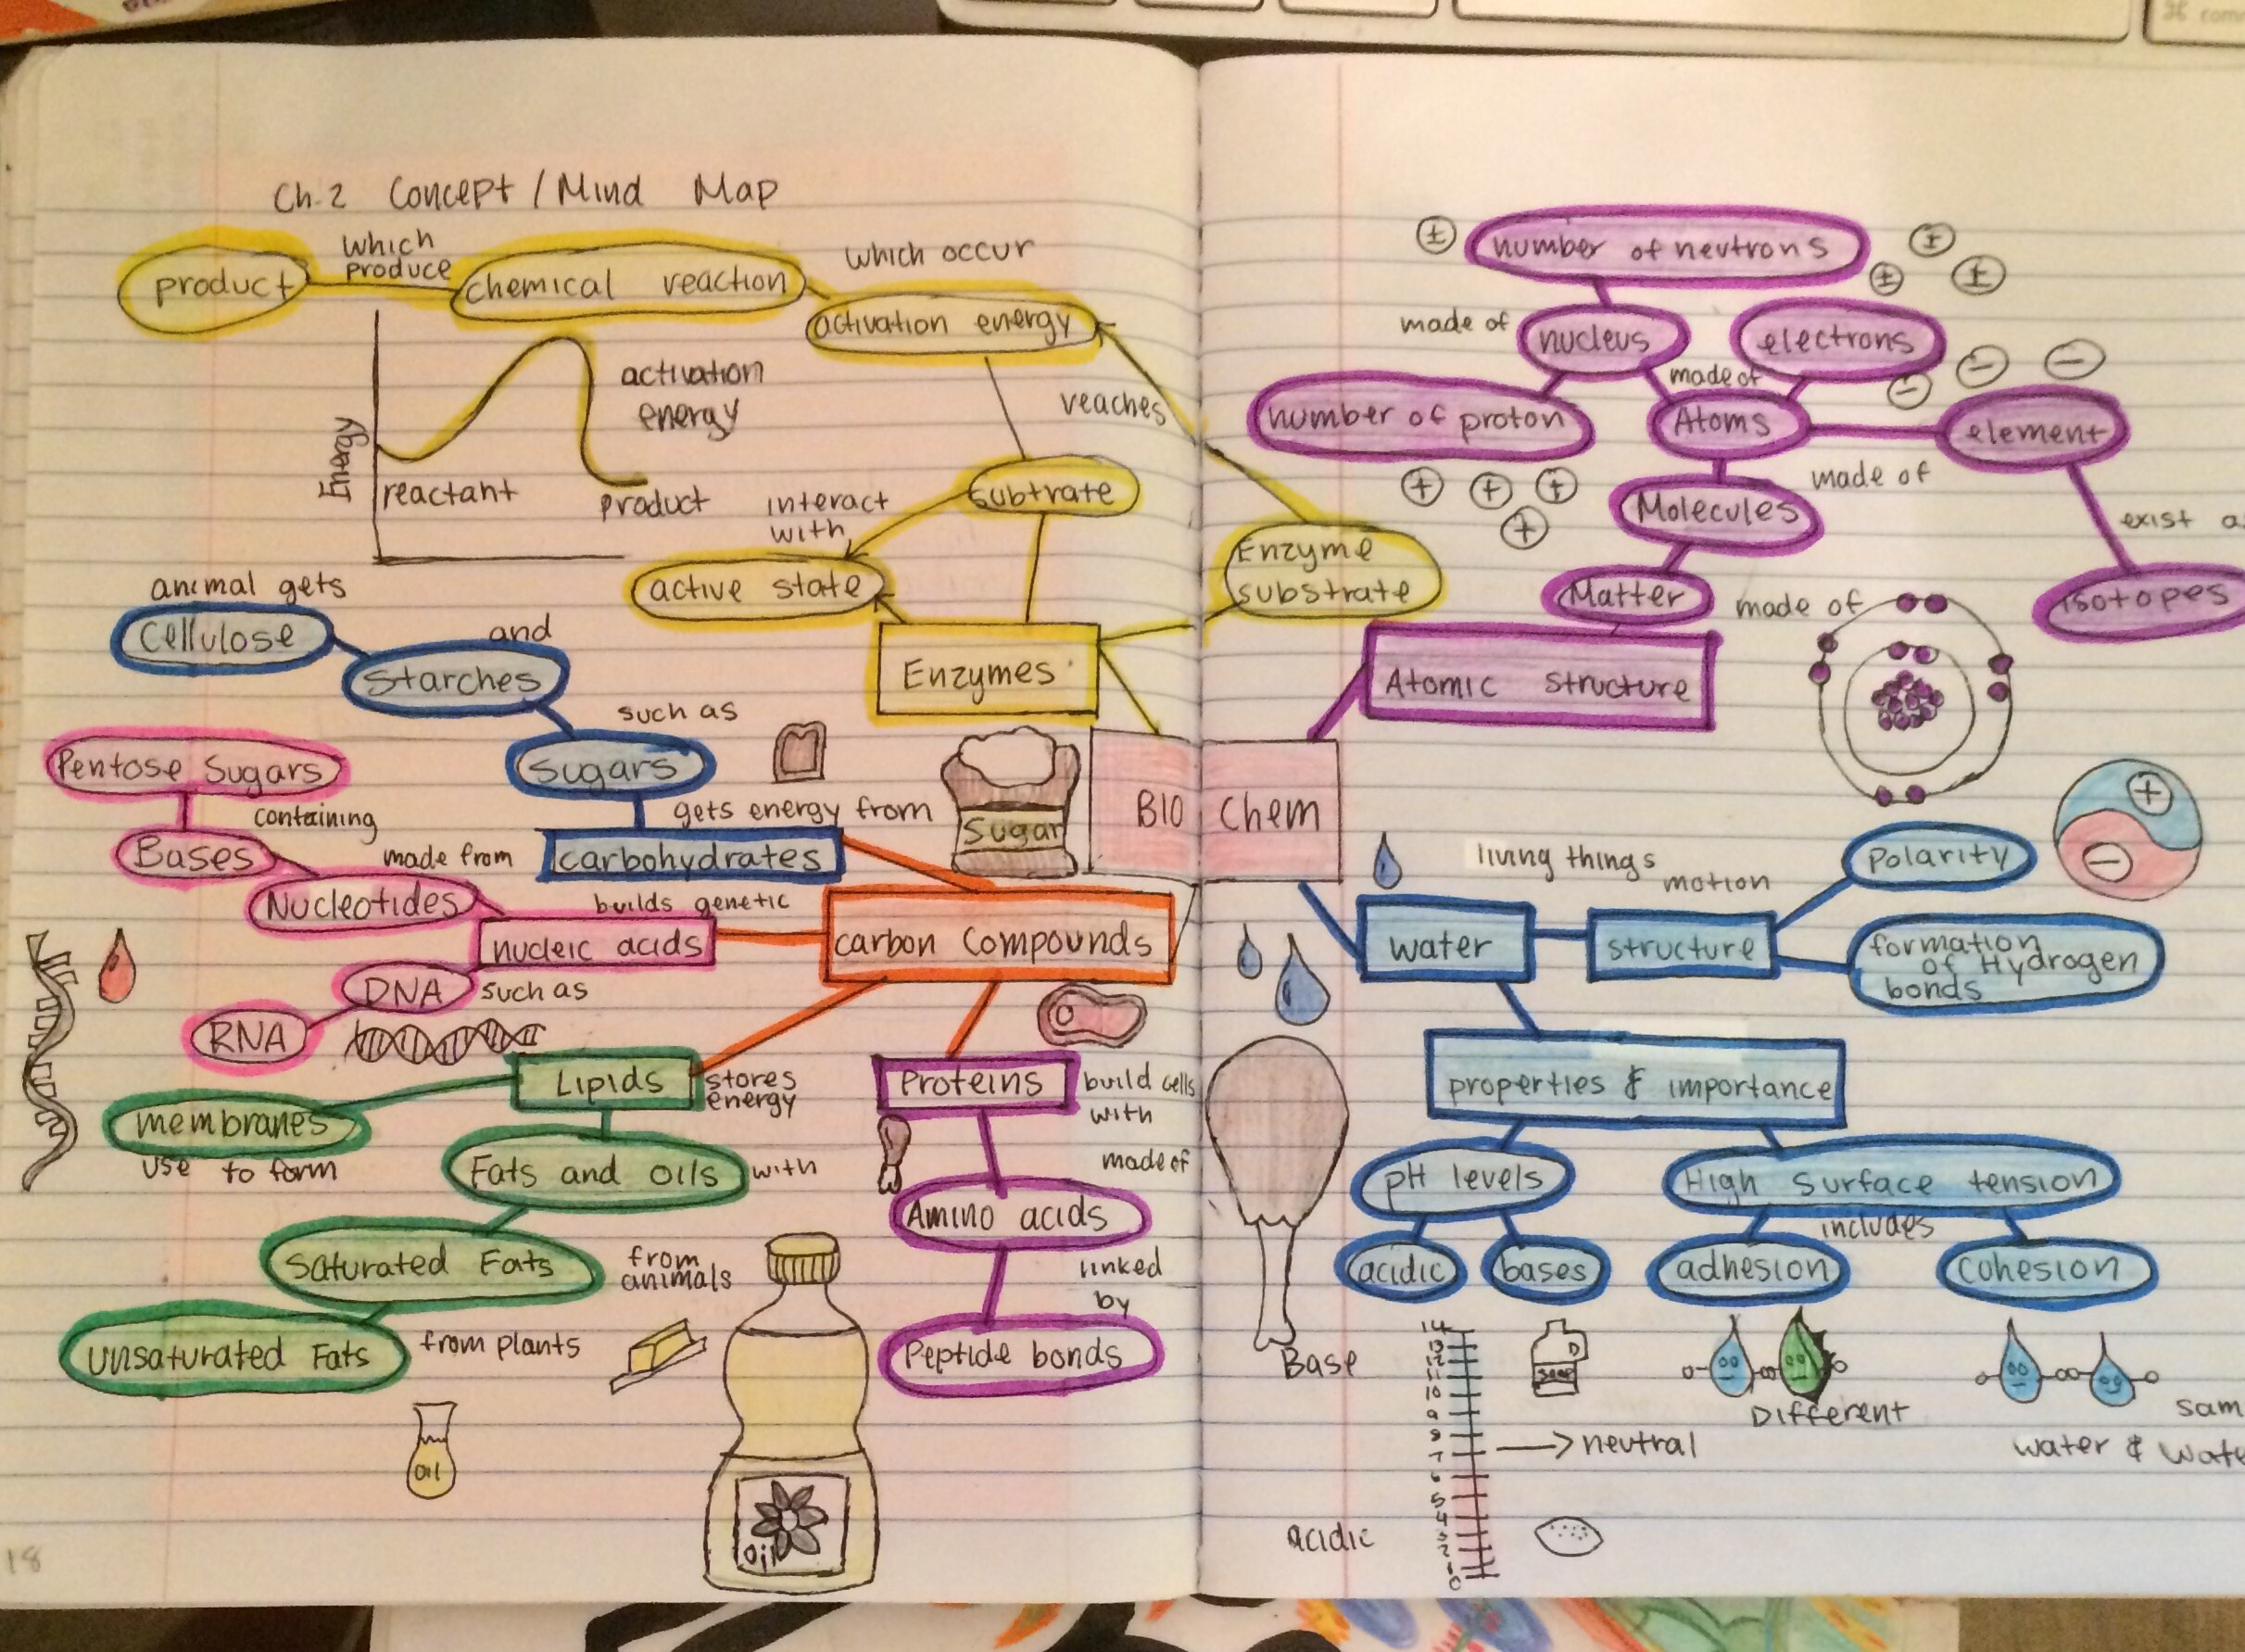 ⌘ com
Ch.2 Concept / Mind Map
product
which
produce
chemical reaction
which occur
activation energy
reaches
Energy
activation
energy
reactant
product
interact
with
Subtrate
active state
Enzyme
substrate
Enzymes
animal gets
Cellulose
and
Starches
such as
Sugars
gets energy from
Sugar
carbohydrates
Pentose Sugars
containing
Bases
made from
Nucleotides
builds genetic
nucleic acids
carbon Compounds
DNA
such as
RNA
Lipids
stores
energy
membranes
use to form
Fats and oils
with
Saturated Fats
from
animals
unsaturated Fats
from plants
oil
Oil
Proteins
build cells
with
made of
Amino acids
linked
by
Peptide bonds
18
BIO Chem
number of neutrons
±
±
±
±
made of
nucleus
electrons
made of
number of proton
Atoms
element
− − −
+ + +
+
Molecules
made of
exist a
Matter
made of
isotopes
Atomic structure
living things
motion
Polarity
+
−
water
structure
formation
of Hydrogen
bonds
properties & importance
pH levels
High surface tension
includes
acidic
bases
adhesion
cohesion
Base
14
13
12
11
10
9
8
7
6
5
4
3
2
1
0
soap
neutral
acidic
Different
sam
water & wate